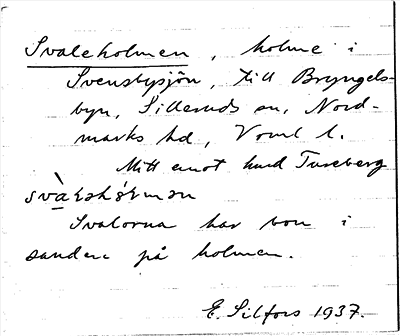 Svaleholmen, holme i
Svensbysjön, till Bryngels-
byn, Silleruds sn, Nord-
marks hd, Vrml l.
Mitt emot hmd Tuseberg
Svalorna har bon i
sanden på holmen.
E. Silfors 1937.